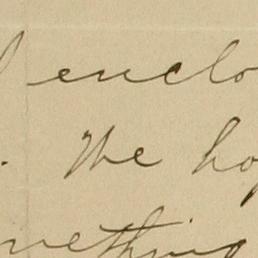 enclo
. We ho
mething